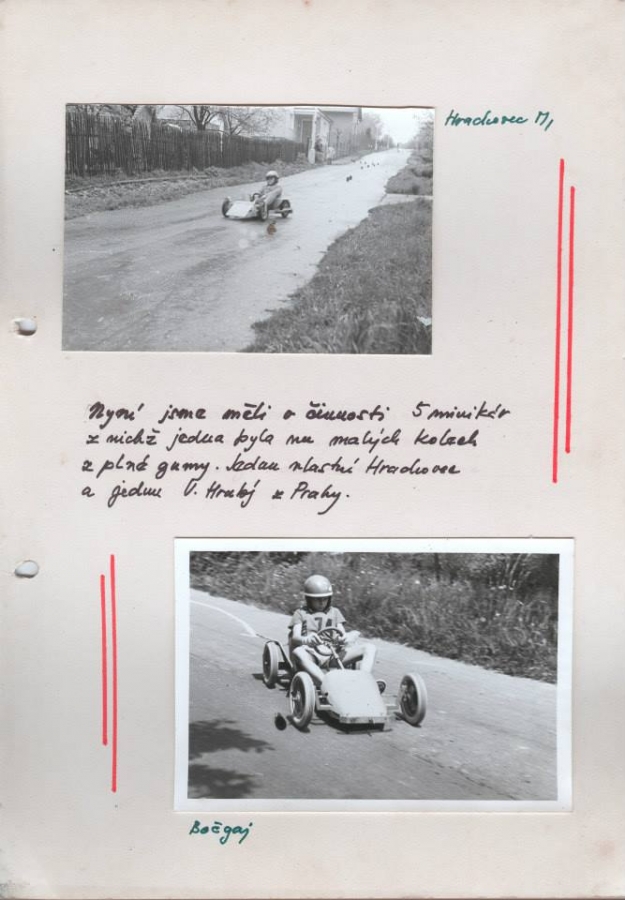 Hrachovec M,
Nyní jsme měli v činnosti 5 minikár
z nichž jedna byla na malých kolech
z plné gumy. Jednu vlastní Hrachovec
a jednu V. Hrubý z Prahy.
74
Bočgaj